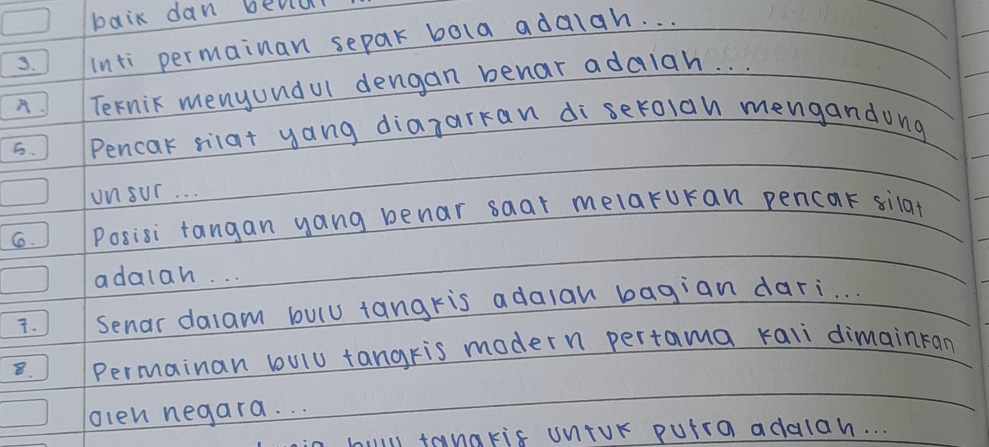 baik dan benar
3. Inti permainan sepak bola adalah...
4. Teknik menyundul dengan benar adalah...
5. Pencak silat yang diajarkan di sekolah mengandung
unsur...
6. Posisi tangan yang benar saat melakukan pencak silat
adalah...
7. Senar dalam bulu tangkis adalah bagian dari...
8. Permainan bulu tangkis modern pertama kali dimainkan
oleh negara...
bulu tangkis untuk putra adalah...